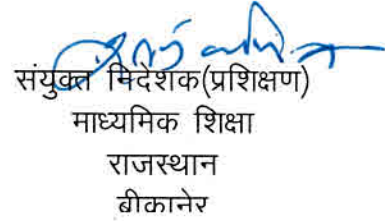 संयुक्त निदेशक(प्रशिक्षण)
माध्यमिक शिक्षा
राजस्थान
बीकानेर